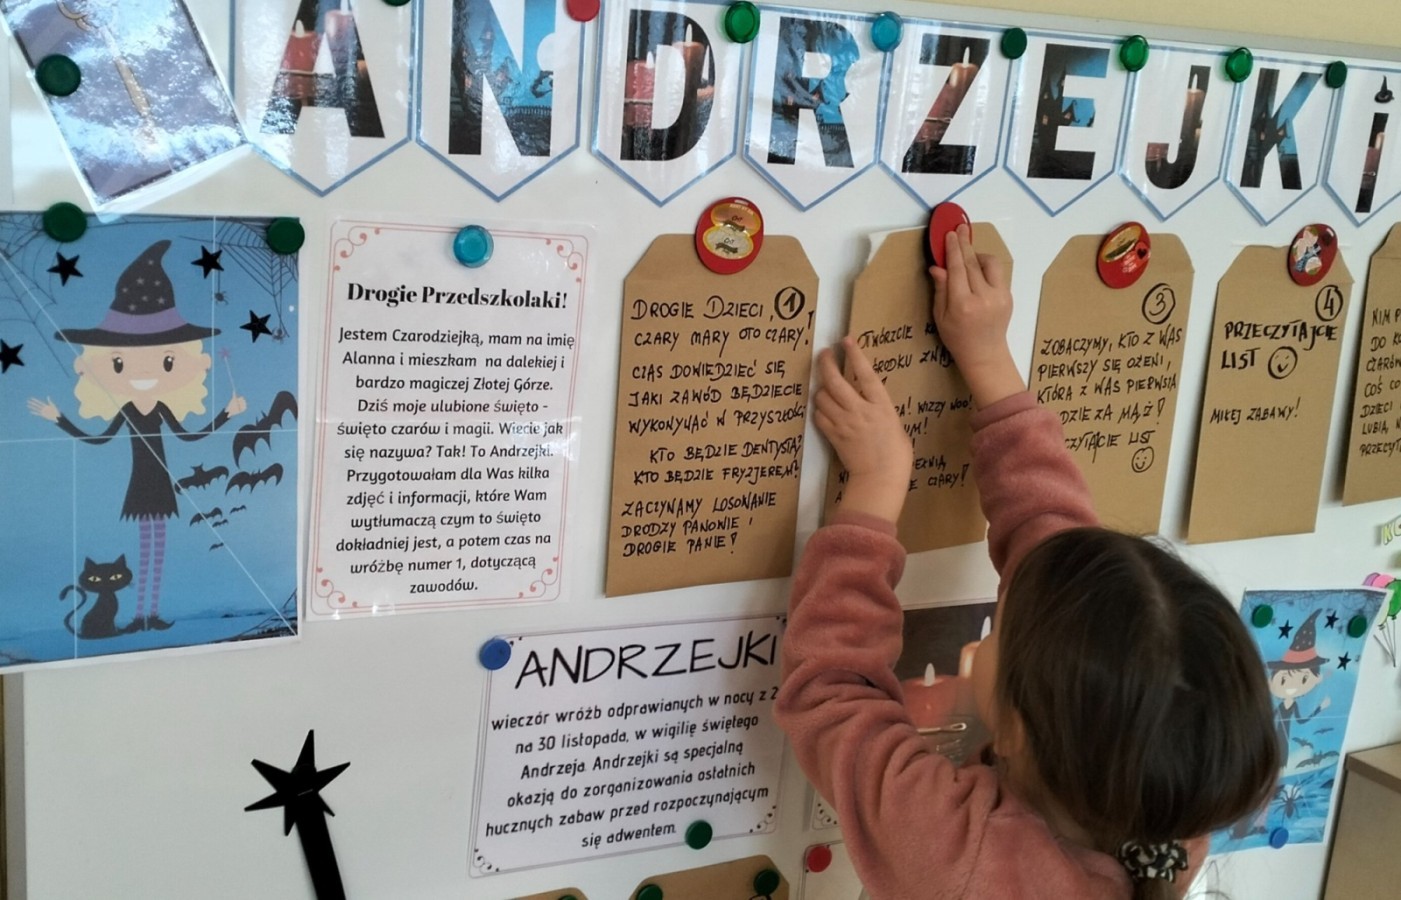 ANDRZEJKi
Drogie Przedszkolaki!
Jestem Czarodziejką, mam na imię
Alanna i mieszkam na dalekiej i
bardzo magicznej Złotej Górze.
Dziś moje ulubione święto -
święto czarów i magii. Wiecie jak
się nazywa? Tak! To Andrzejki.
Przygotowałam dla Was kilka
zdjęć i informacji, które Wam
wytłumaczą czym to święto
dokładniej jest, a potem czas na
wróżbę numer 1, dotyczącą
zawodów.
DROGIE DZIECI, 1
CZARY MARY OTO CZARY!
CZAS DOWIEDZIEĆ SIĘ
JAKI ZAWÓD BĘDZIECIE
WYKONYWAĆ W PRZYSZŁOŚCI
KTO BĘDZIE DENTYSTĄ?
KTO BĘDZIE FRYZJEREM?
ZACZYNAMY LOSOWANIE
DRODZY PANOWIE I
DROGIE PANIE!
OTWÓRZCIE
WIZZY WOO!
CZARY!
3
ZOBACZYMY, KTO Z WAS
PIERWSZY SIĘ OŻENI,
KTÓRA Z WAS PIERWSZA
ZA MĄŻ!
LIST
4
PRZECZYTAJCIE
LIST
MIŁEJ ZABAWY!
NIM
DO
COŚ
DZIECI
LUBIĄ,
ANDRZEJKI
wieczór wróżb odprawianych w nocy z 2
na 30 listopada, w wigilię świętego
Andrzeja. Andrzejki są specjalną
okazją do zorganizowania ostatnich
hucznych zabaw przed rozpoczynającym
się adwentem.